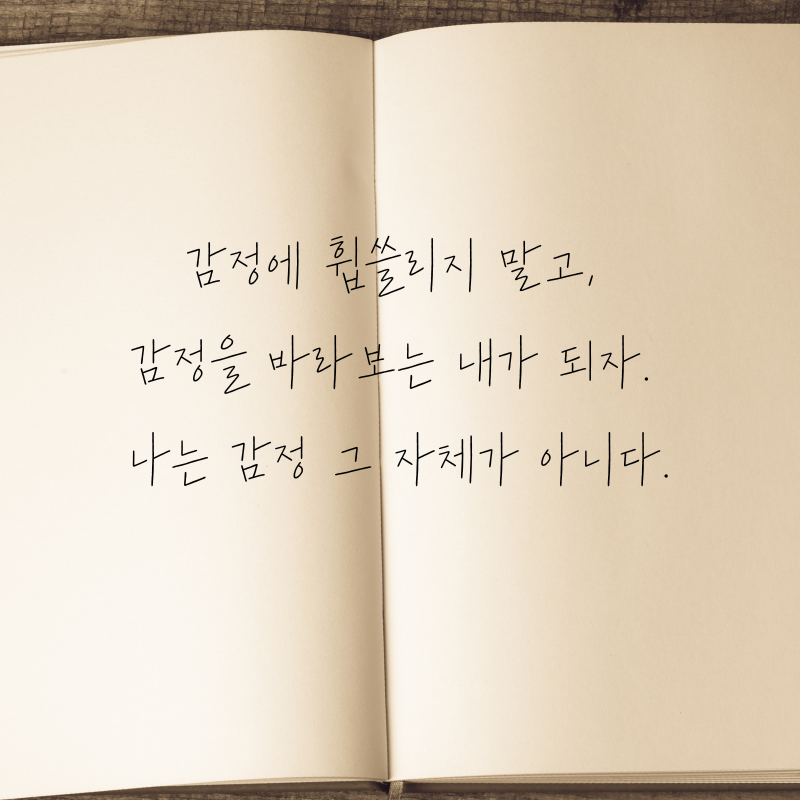 감정에 휩쓸리지 말고,
감정을 바라보는 내가 되자.
나는 감정 그 자체가 아니다.